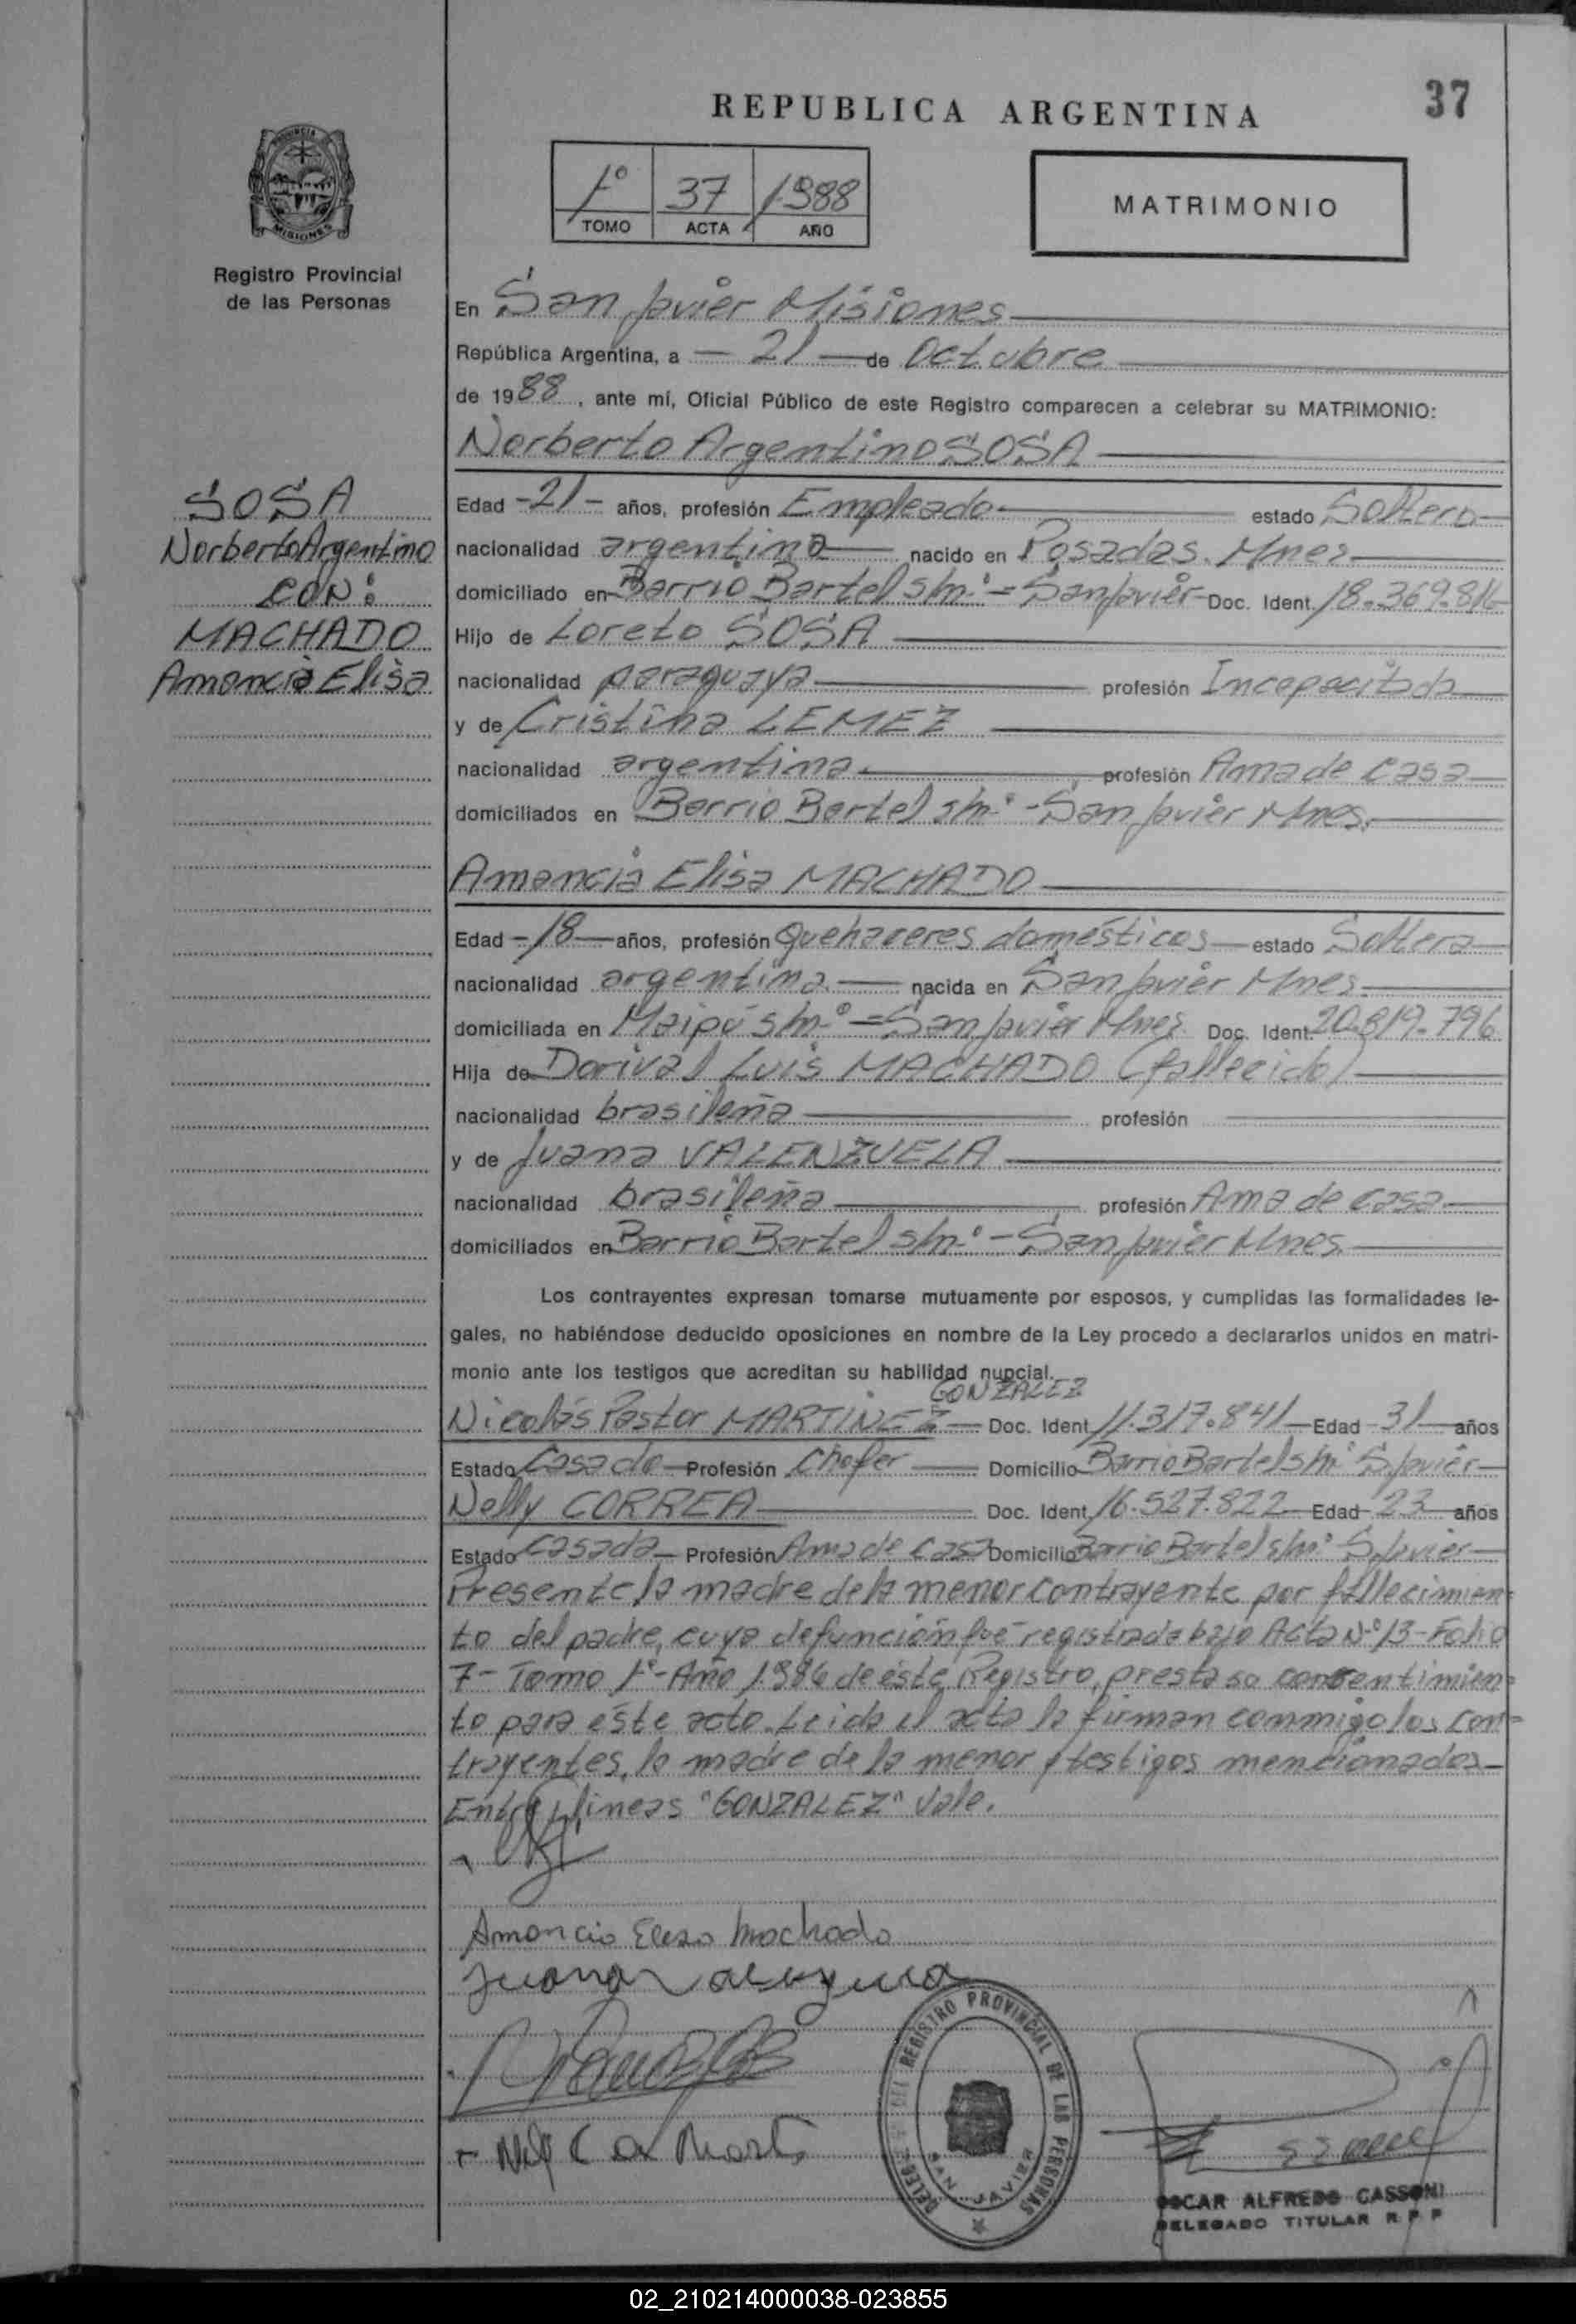 37
REPUBLICA ARGENTINA
1º 37 1988
TOMO ACTA AÑO
MATRIMONIO
PROVINCIA
MISIONES
Registro Provincial
de las Personas
En San Javier Misiones
República Argentina, a 21 de Octubre
de 1988, ante mí, Oficial Público de este Registro comparecen a celebrar su MATRIMONIO:
Norberto Argentino SOSA
SOSA
Norberto Argentino
CON:
MACHADO
Amancia Elisa
Edad -21- años, profesión Empleado estado Soltero
nacionalidad argentina nacido en Posadas. Mnes
domiciliado en Barrio Bartel s/n.º = San Javier Doc. Ident. 18.369.816
Hijo de Loreto SOSA
nacionalidad paraguaya profesión Incapacitado
y de Cristina LEMEZ
nacionalidad argentina. profesión Ama de casa
domiciliados en Barrio Bartel s/nº - San Javier Mnes.
Amancia Elisa MACHADO
Edad -18- años, profesión Quehaceres domésticos estado Soltera
nacionalidad argentina. nacida en San Javier Mnes.
domiciliada en Maipú s/n.º = San Javier Mnes Doc. Ident. 20.819.796
Hija de Dorival Luis MACHADO (fallecido)
nacionalidad brasileña profesión
y de Juana VALENZUELA
nacionalidad brasileña profesión Ama de casa
domiciliados en Barrio Bartel s/n.º - San Javier Mnes.
Los contrayentes expresan tomarse mutuamente por esposos, y cumplidas las formalidades le-
gales, no habiéndose deducido oposiciones en nombre de la Ley procedo a declararlos unidos en matri-
monio ante los testigos que acreditan su habilidad nupcial.
GONZALEZ
Nicolás Pastor MARTINEZ Doc. Ident. 11.317.841 Edad 31 años
Estado Casado Profesión Chofer Domicilio Barrio Bartel s/nº S. Javier
Nelly CORREA Doc. Ident. 16.527.822 Edad 23 años
Estado Casada Profesión Ama de Casa Domicilio Barrio Bartel s/nº S. Javier
Presente la madre de la menor contrayente por fallecimien=
to del padre, cuya defunción fué registrada bajo Acta N.º 13 - Folio
7 - Tomo 1º - Año 1.986 de éste Registro, presta su consentimien=
to para éste acto. Leida el acta la firman conmigo los con=
trayentes, la madre de la menor y testigos mencionados.
Entre lineas "GONZALEZ" Vale.
Amancia Elisa Machado
Juana Valenzuela
DEL REGISTRO PROVINCIAL DE LAS PERSONAS
SAN JAVIER
OSCAR ALFREDO CASSONI
DELEGADO TITULAR R. P. P
02_210214000038-023855